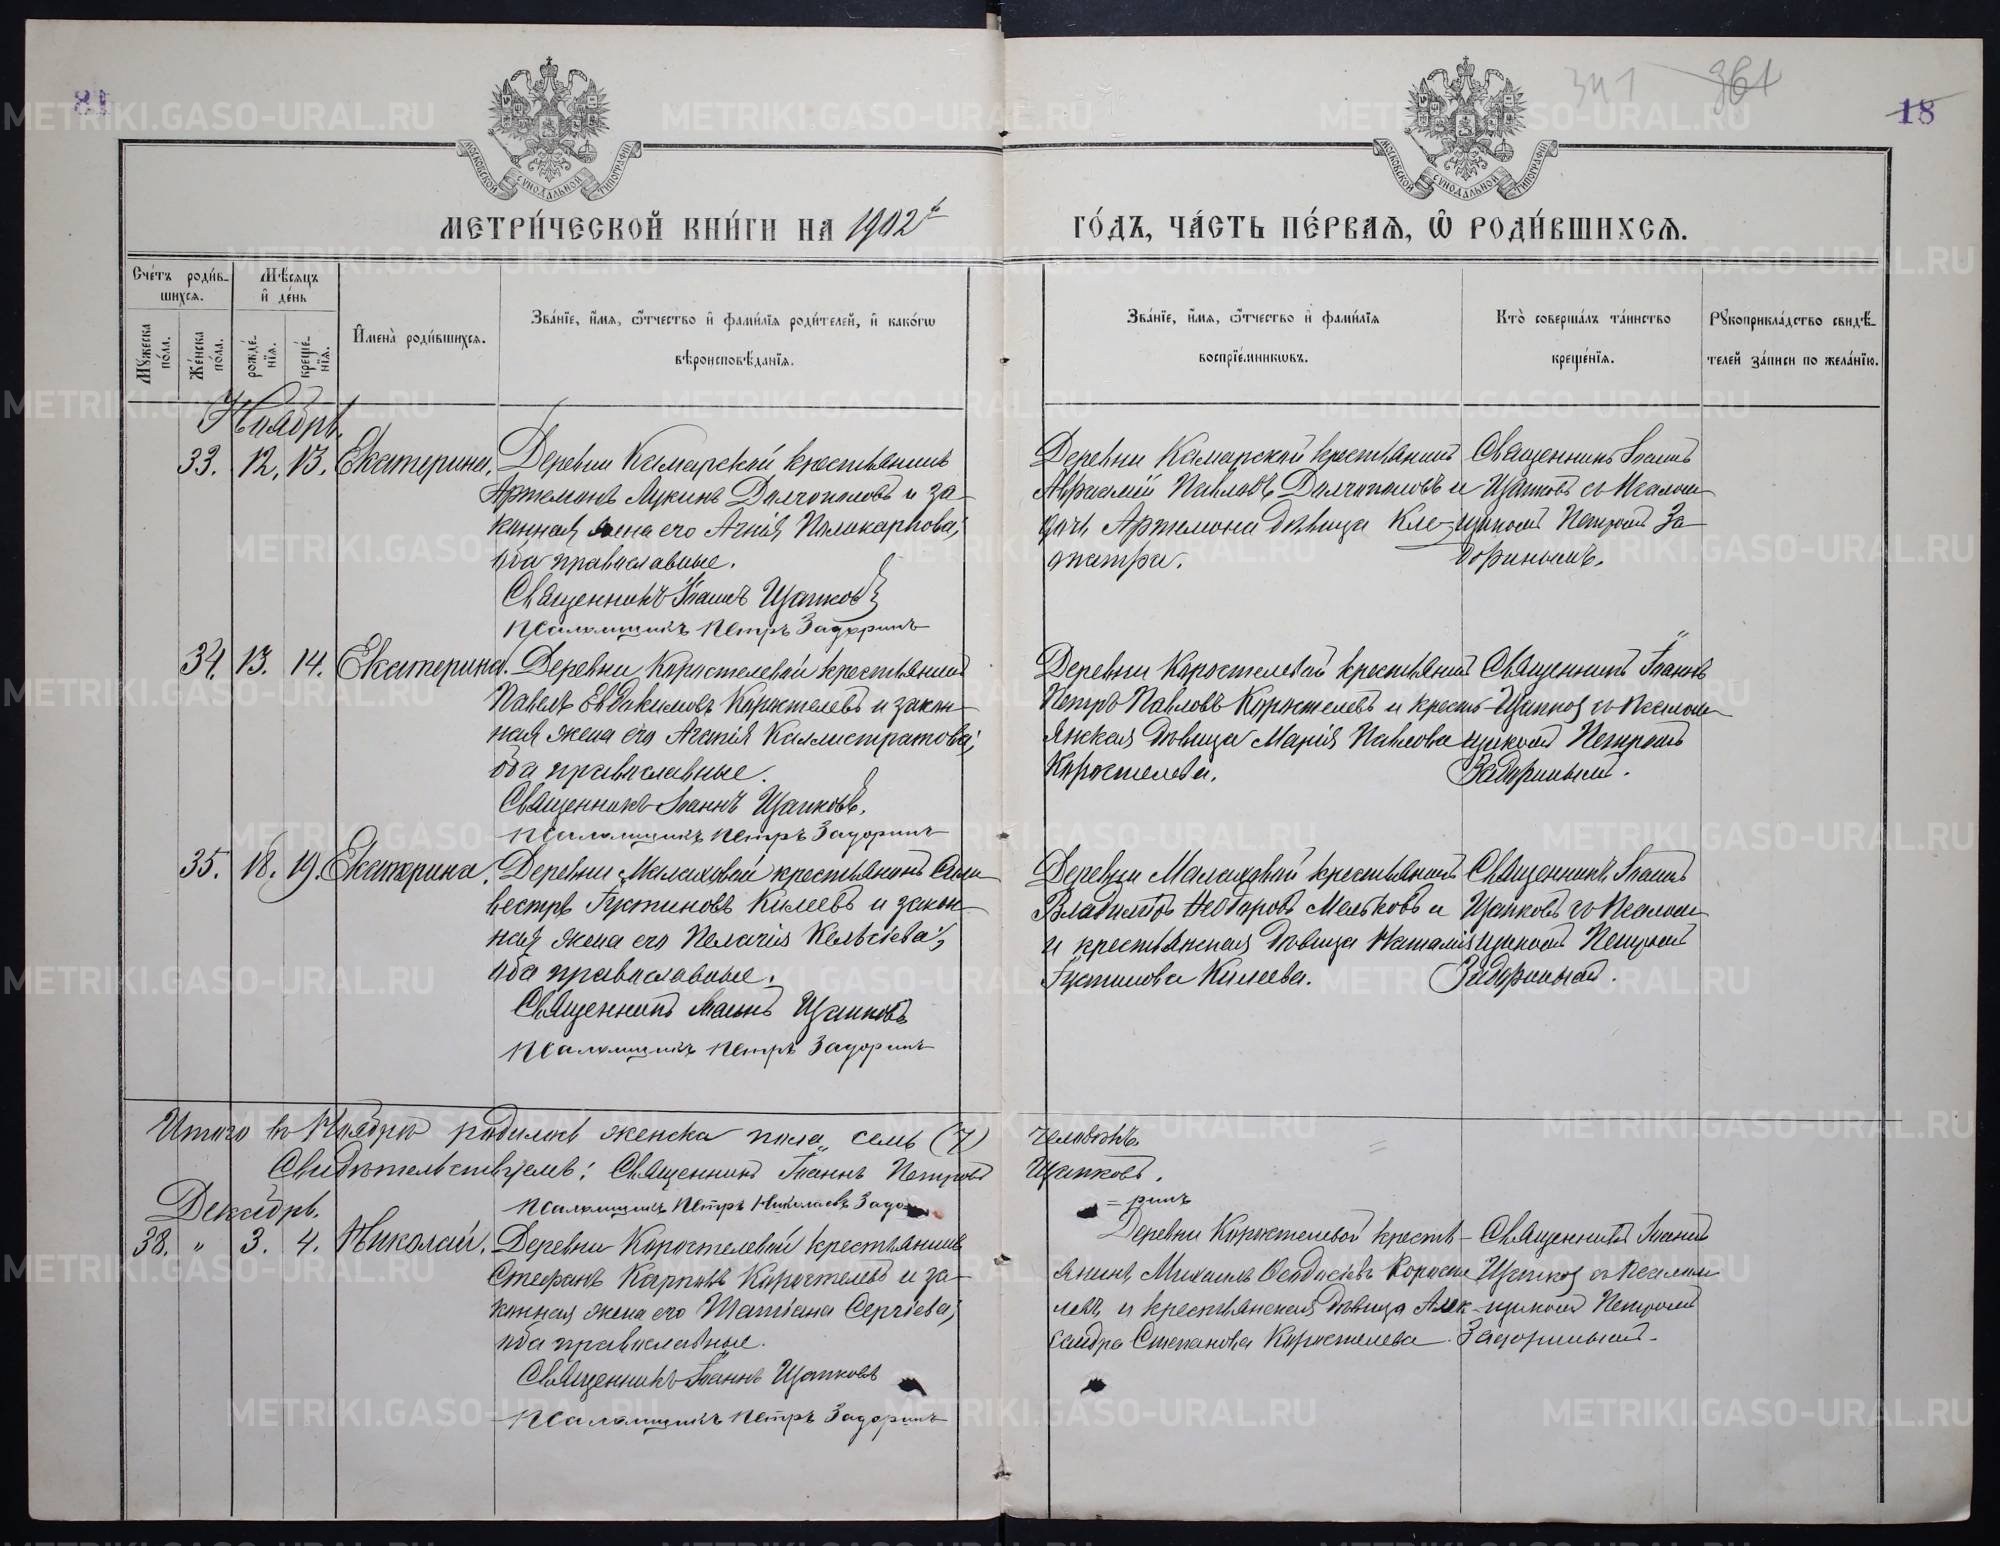 81
341 361
18
МОСКОВСКОЙ СУНОДАЛЬНОЙ ТИПОГРАФІИ
МОСКОВСКОЙ СУНОДАЛЬНОЙ ТИПОГРАФІИ
МЕТРИ́ЧЕСКОЙ КНИ́ГИ НА 1902 ГО́ДЪ, ЧА́СТЬ ПЕ́РВАЯ, Ѽ РОДИ́ВШИХСЯ.
Сче́тъ роди́в-
шихся.
Мѣсяцъ
и҆ де́нь
Мꙋжеска по́ла.
Же́нска по́ла.
рожде́нїя.
креще́нїя.
И҆мена̀ роди́вшихся.
Зва́нїе, и҆́мя, ѻ҆́тчество и҆ фами́лїя роди́телей, и҆ како́гѡ
вѣроисповѣ́данїя.
Зва́нїе, и҆́мя, ѻ҆́тчество и҆ фами́лїя
воспрїе́мникѡвъ.
Кто̀ соверша́лъ та́инство
креще́нїя.
Рꙋкоприкла́дство свидѣ́-
телей за́писи по жела́нїю.
Ноябрь.
33. 12. 13. Екатерина.
Деревни Камарской крестьянинъ
Артемонъ Лукинъ Долгополовъ и за-
конная жена его Агнія Поликарпова,
оба православные.
Священникъ Іоаннъ Цапковъ
Псаломщикъ Петръ Задоринъ
Деревни Камарской крестьянинъ
Авраамій Павловъ Долгополовъ и
дочь Артемона дѣвица Клео-
патра.
Священникъ Іоаннъ
Цапковъ съ Псалом-
щикомъ Петромъ За-
доринымъ.
34. 13. 14. Екатерина.
Деревни Коростелевой крестьянинъ
Павелъ Евдокимовъ Коростелевъ и закон-
ная жена его Агапія Каллистратова,
оба православные.
Священникъ Іоаннъ Цапковъ.
Псаломщикъ Петръ Задоринъ
Деревни Коростелевой крестьянинъ
Петръ Павловъ Коростелевъ и кресть-
янская дѣвица Марія Павлова
Коростелева.
Священникъ Іоаннъ
Цапковъ съ Псалом-
щикомъ Петромъ
Задоринымъ.
35. 18. 19. Екатерина.
Деревни Малаховой крестьянинъ Сили-
вестръ Густиновъ Килеевъ и закон-
ная жена его Пелагія Кельсіева,
оба православные.
Священникъ Іоаннъ Цапковъ
Псаломщикъ Петръ Задоринъ
Деревни Малаховой крестьянинъ
Владиміръ Ѳеодоровъ Мельковъ и
и крестьянская дѣвица Наталія
Густинова Килеева.
Священникъ Іоаннъ
Цапковъ съ Псалом-
щикомъ Петромъ
Задоринымъ.
Итого въ Ноябрѣ родилось женска пола семь (7) человѣкъ.
Свидѣтельствуемъ: Священникъ Іоаннъ Петровъ Цапковъ.
Псаломщикъ Петръ Николаевъ Задо=ринъ
Декабрь.
38. „ 3. 4. Николай.
Деревни Коростелевой крестьянинъ
Стефанъ Карповъ Коростелевъ и за-
конная жена его Татіана Сергіева,
оба православные.
Священникъ Іоаннъ Цапковъ
Псаломщикъ Петръ Задоринъ
Деревни Коростелевой кресть-
янинъ Михаилъ Ѳеодосіевъ Коросте
левъ и крестьянская дѣвица Алек-
сандра Степанова Коростелева.
Священникъ Іоаннъ
Цапковъ съ Псалом
щикомъ Петромъ
Задоринымъ.
METRIKI.GASO-URAL.RU